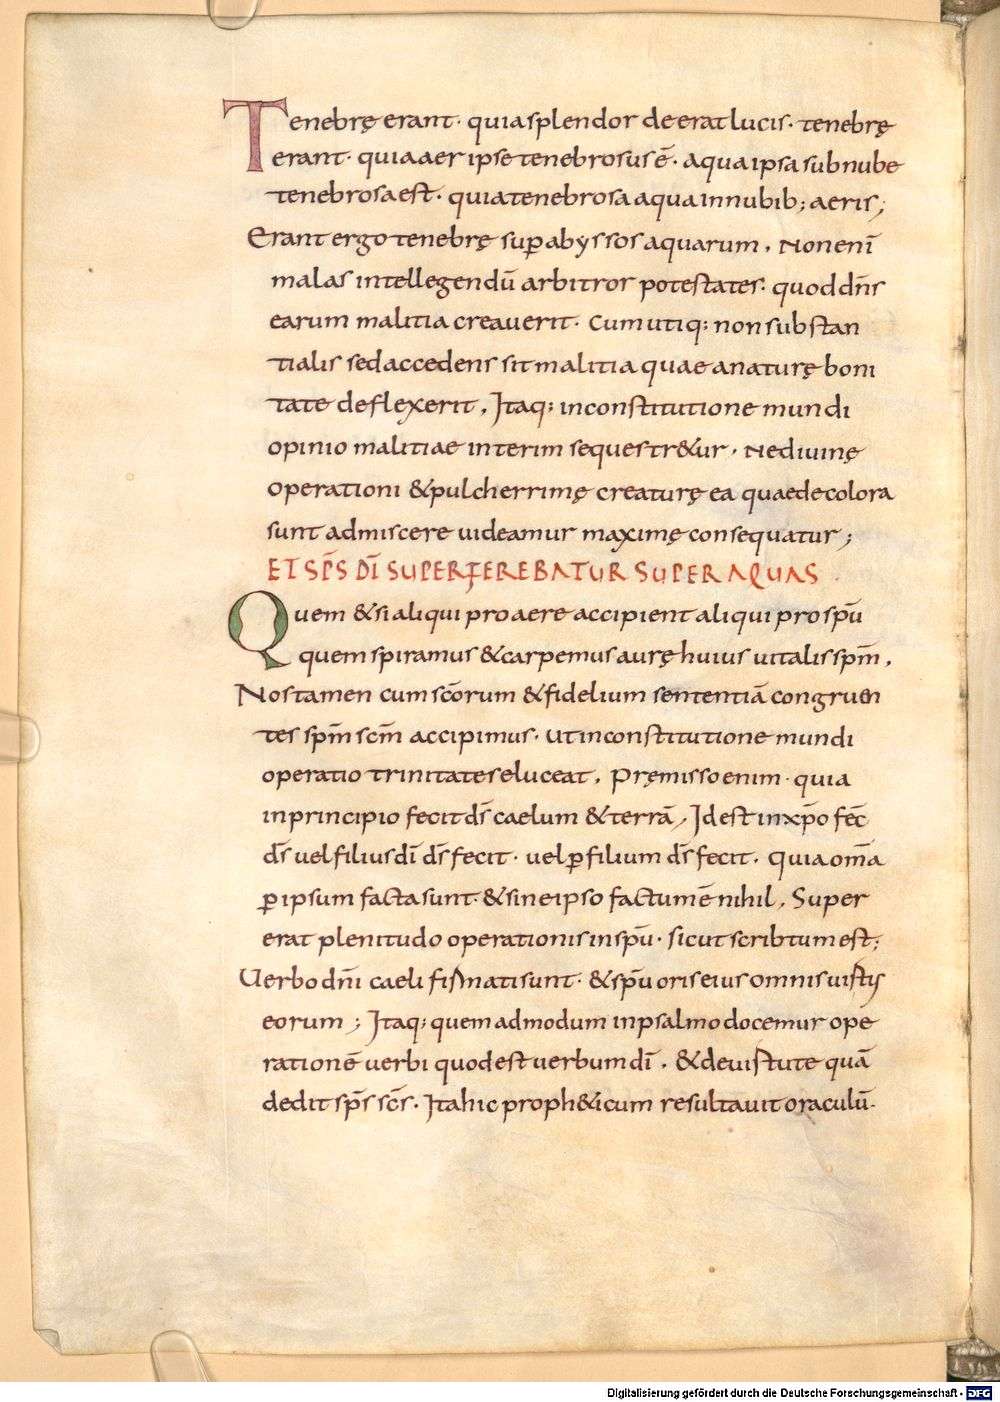 Tenebrę erant· quia splendor deerat lucis· tenebrę
erant· quia aer ipse tenebrosus ē· aqua ipsa sub nube
tenebrosa est· quia tenebrosa aqua in nubib; aeris;
Erant ergo tenebrę suꝑ abyssos aquarum, Non enī
malas intellegendū arbitror potestates· quod dn̄s
earum malitia creauerit· Cum utiq; non substan
tialis sed accedens sit malitia quae a naturę boni
tate deflexerit, Itaq; in constitutione mundi
opinio malitiae interim sequestr&ur, Ne diuinę
operationi & pulcherrimę creaturę ea quae decolora
sunt admiscere uideamur maximę consequatur;
ET SP̄S DĪ SUPERFEREBATUR SUPER AQUAS
Quem & si aliqui pro aere accipient aliqui pro sp̄u
quem spiramus & carpemus aurę huius uitalis sp̄m,
Nos tamen cum sc̄orum & fidelium sententiā congruen
tes sp̄m sc̄m accipimus· ut in constitutione mundi
operatio trinitates eluceat, Pręmisso enim· quia
in principio fecit ds̄ caelum & terrā, Id est in xp̄o fec̄
ds̄ uel filius dī ds̄ fecit· uel ꝑ filium ds̄ fecit· quia om̄a
ꝑ ipsum facta sunt· & sine ipso factum ē nihil, Super
erat plenitudo operationis in sp̄u· sicut scribtum est;
Uerbo dn̄i caeli firmati sunt· & sp̄u oris eius omnis uirtus
eorum; Itaq; quem ad modum in psalmo docemur ope
rationē uerbi quod est uerbum dī, & de uirtute quā
dedit sp̄s sc̄s· Ita hic proph&icum resultauit oraculū·
Digitalisierung gefördert durch die Deutsche Forschungsgemeinschaft - DFG